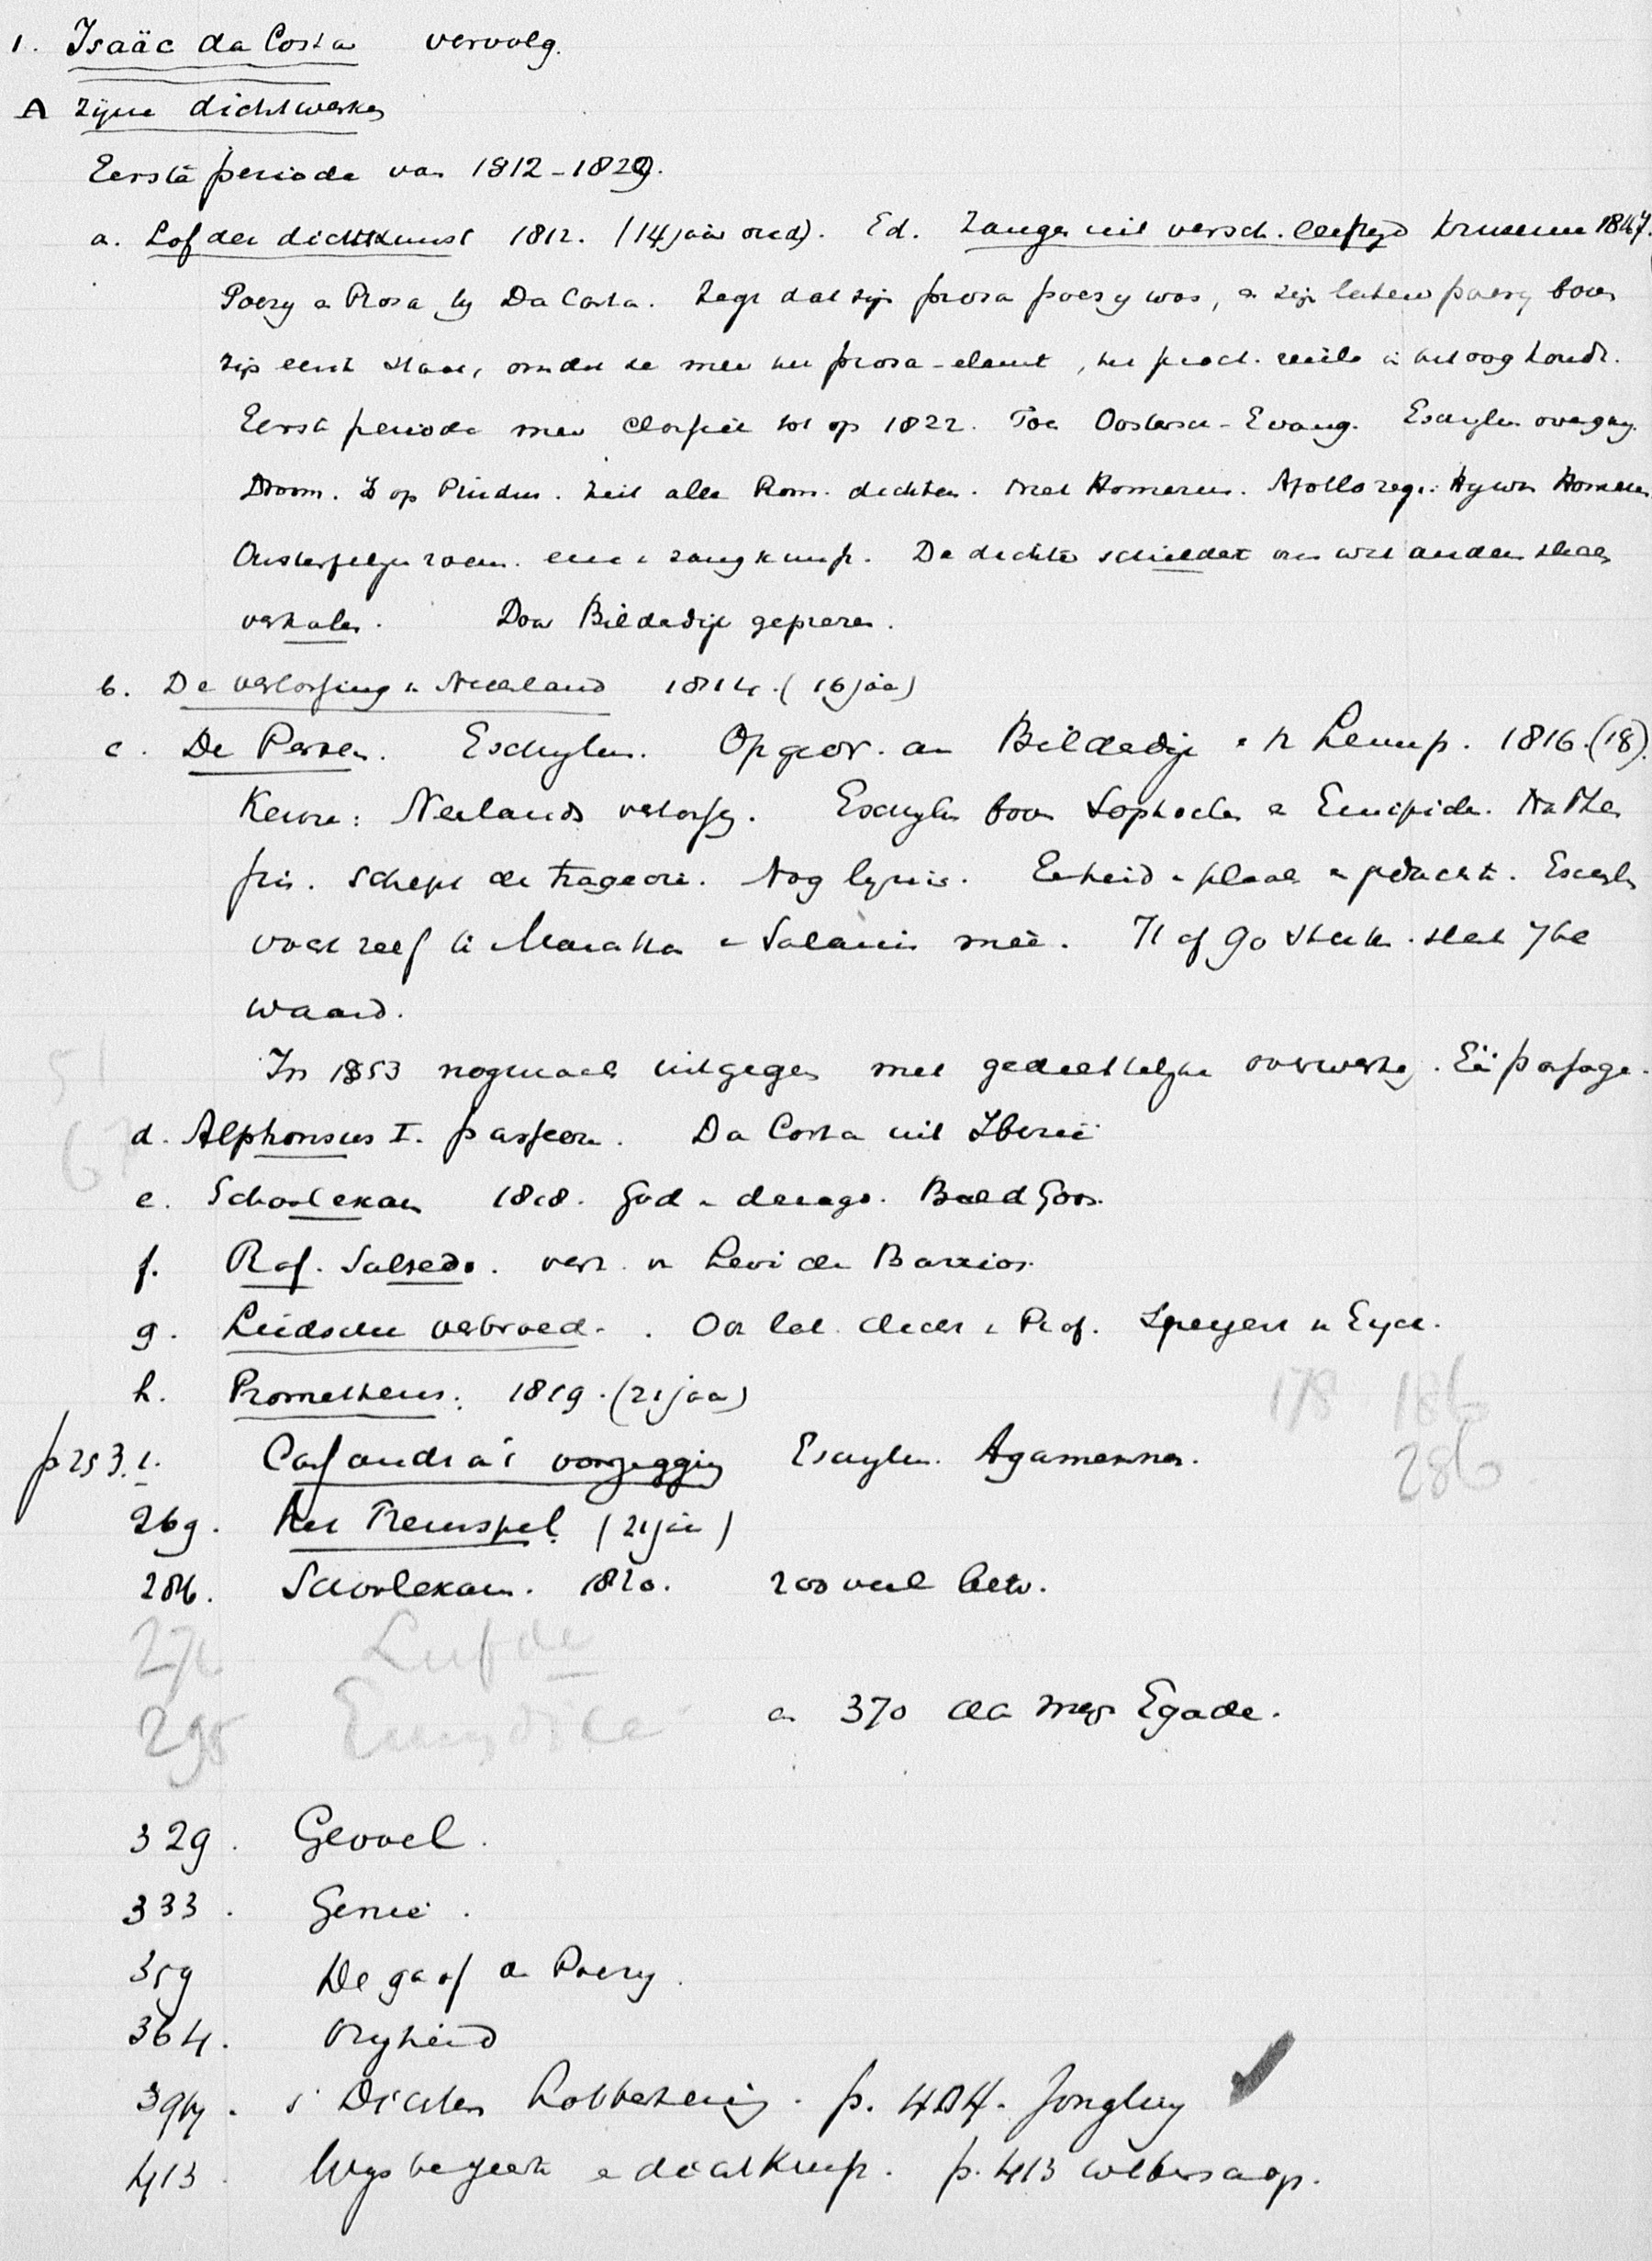 1. Isaäc da Costa vervolg.
A zijne dichtwerken
Eerste periode van 1812-1829.
a. Lof der dichtkunst 1812. (14 jaar oud). Ed. Zangen uit versch. leeftijd Kruseman 1847.
Poezy en Proza bij Da Costa. Zegt dat zijn proza poezy was, en zijn latere poezy boven
zijn eerste staat, omdat ze meer het proza-element, het pract. reëele in het oog houdt.
Eerste periode meer classiek tot op 1822. Toen Oostersch-Evang. Eschylus overgang.
Droom. Is op Pindus. Ziet alle Rom. dichters. Met Homerus. Apollo zegt: Hij was Homerus
Onsterfelijke roem. eener zangkunst. De dichter schildert ons wat anderen slechts
verhalen. Door Bilderdijk geprezen.
b. De verlossing v. Neerland 1814. (16 jaar)
c. De Perzen. Eschylus. Opgedr. aan Bilderdijk en v. Lennep. 1816. (18).
Keuze: Neerlands verlossg. Eschylus boven Sophocles en Euripides. Na Thes
pis. Schept de tragedie. Nog lyrisch. Eenheid v. plaats en gedachte. Eschyls
vocht zelf bij Marathon en Salamis meê. 71 of 90 stukken. slechts 7 be
waard.
In 1853 nogmaals uitgegeven met gedeeltelijke overwerkg. Eén passage.
51
67
d. Alphonsus I. passeere. Da Costa uit Iberië
e. Schoolexam 1818. God en deugd. Bald Goos.
f. Raf. Salsedo. verz. v. Levi de Barrios.
g. Leidsche verbroed.
h. Prometheus. 1819. (21 jaar)
178 186
286
p 253. i. Cassandra's voorzegging Eschylus. Agamemnon.
269. Het Treurspel (21 jaar)
286. Schoolexam. 1820. zoo veel betw.
276 Liefde
295 Eurydice
370
329. Gevoel.
333. Genie.
359 De gaaf der Poezy.
364. Vrijheid
394. 's Dichters Lotbestemming. p. 404. Jongling
413 Wijsbegeerte en dichtkunst. p. 413